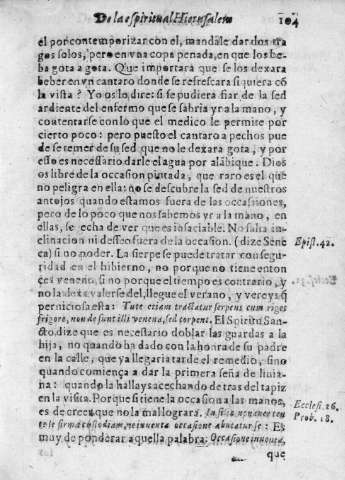 De la espiritual Hierusalem 104
él por contemporizar con el, mandale dar dos tra
gos solos, pero en vna copa penada, en que los be-
ba gota a gota. Que importara que se los dexara
beber en vn cantaro donde se refrescara si quiera cõ
la vista? Yo os lo dire: si se pudiera fiar de la sed
ardiente del enfermo que se sabria yr a la mano, y
contentarse con lo que el medico le permite por
cierto poco: pero puesto el cantaro a pechos pue
de se temer de su sed que no le dexara gota, y por
esso es necessario darle el agua por alabique. Dios
os libre de la occasion pintada, que raro es el que
no peligra en ella: no se descubre la sed de nuestros
antojos quando estamos fuera de las occasiones,
pero de lo poco que nos sabemos yr a la mano, en
ellas, se echa de ver que es insaciable. No falta in-
clinacion ni desseo fuera de la occasion. (dize Sene
ca) si no poder. La sierpe se puede tratar con segu-
ridad en el hibierno, no porque no tiene enton
ces veneno, si no porque el tiempo es contrario, y
no la dexa valerse del, llegue el verano, y vereys q̃
perniciosa es: Tute etiam tractatur serpens cum riget
frigore, non desunt illi venena, sed torpent. El Spiritu San-
cto dize que es necessario doblar las guardas a la
hija, no quando ha dado con la honra de su padre
en la calle, que ya llegaria tarde el remedio, sino
quando comiença a dar la primera seña de liuia-
na: quando la hallays acechando de tras del tapiz
en la visita. Porque si tiene la occasion a las manos,
es de creer que no la malograrà. In filia non auerten
te se firma custodiam, ne inuenta occasione abutatur se: Es
muy de ponderar aquella palabra: Occasione inuenta,
que
Epist. 42.
Ecclesi. 26.
Prob. 18.